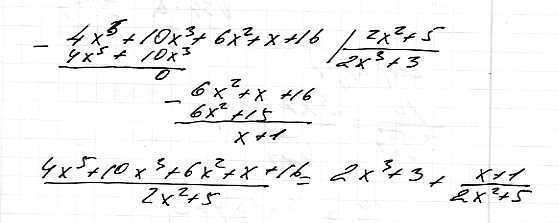 - 4x⁵ + 10x³ + 6x² + x + 16 | 2x² + 5
4x⁵ + 10x³ 2x³ + 3
0
- 6x² + x + 16
6x² + 15
x + 1
4x⁵ + 10x³ + 6x² + x + 16 / 2x² + 5 = 2x³ + 3 + x + 1 / 2x² + 5